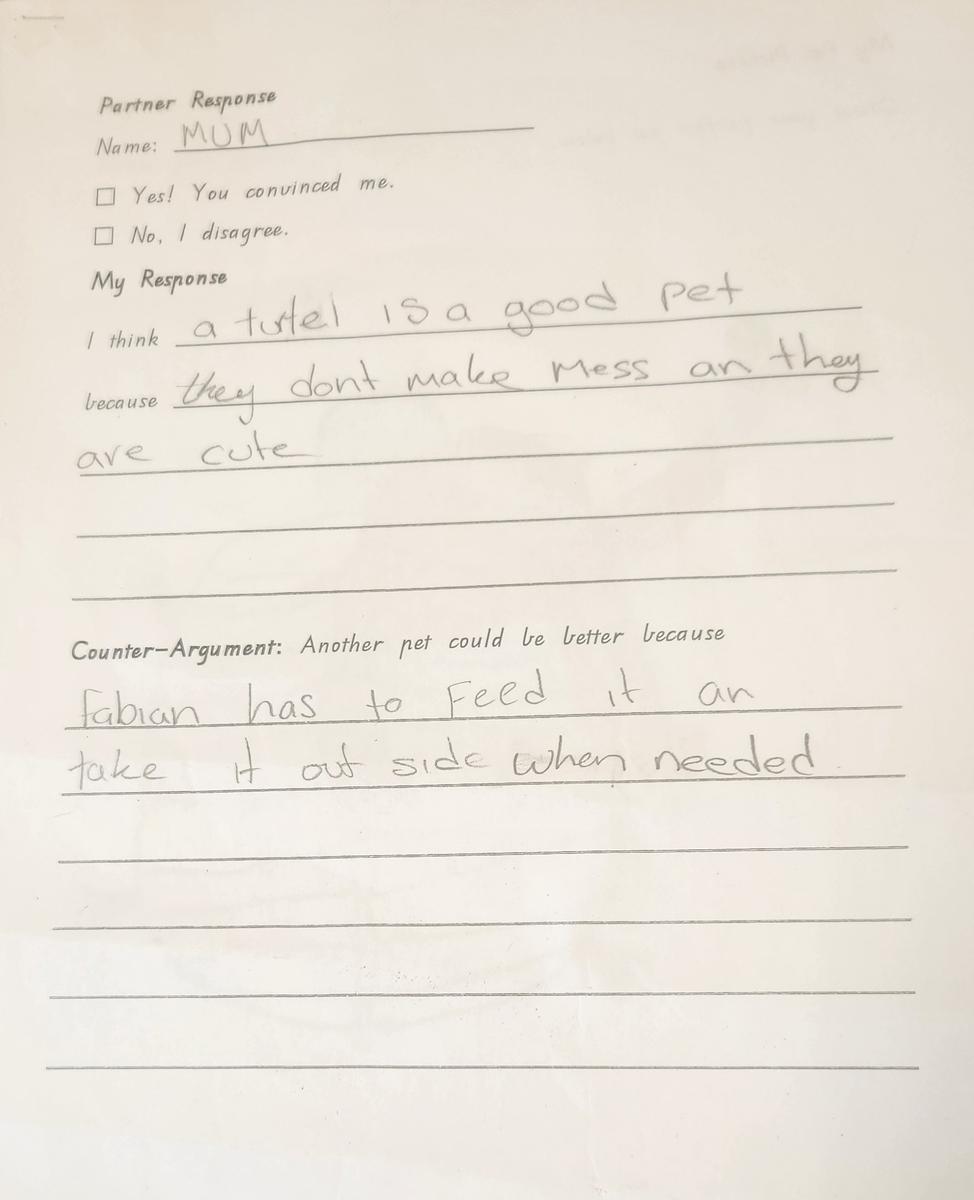 Partner Response
Name: MUM
☐ Yes! You convinced me.
☐ No, I disagree.
My Response
I think a turtel is a good pet
because they dont make mess an they
are cute
Counter-Argument: Another pet could be better because
fabian has to Feed it an
take it out side when needed